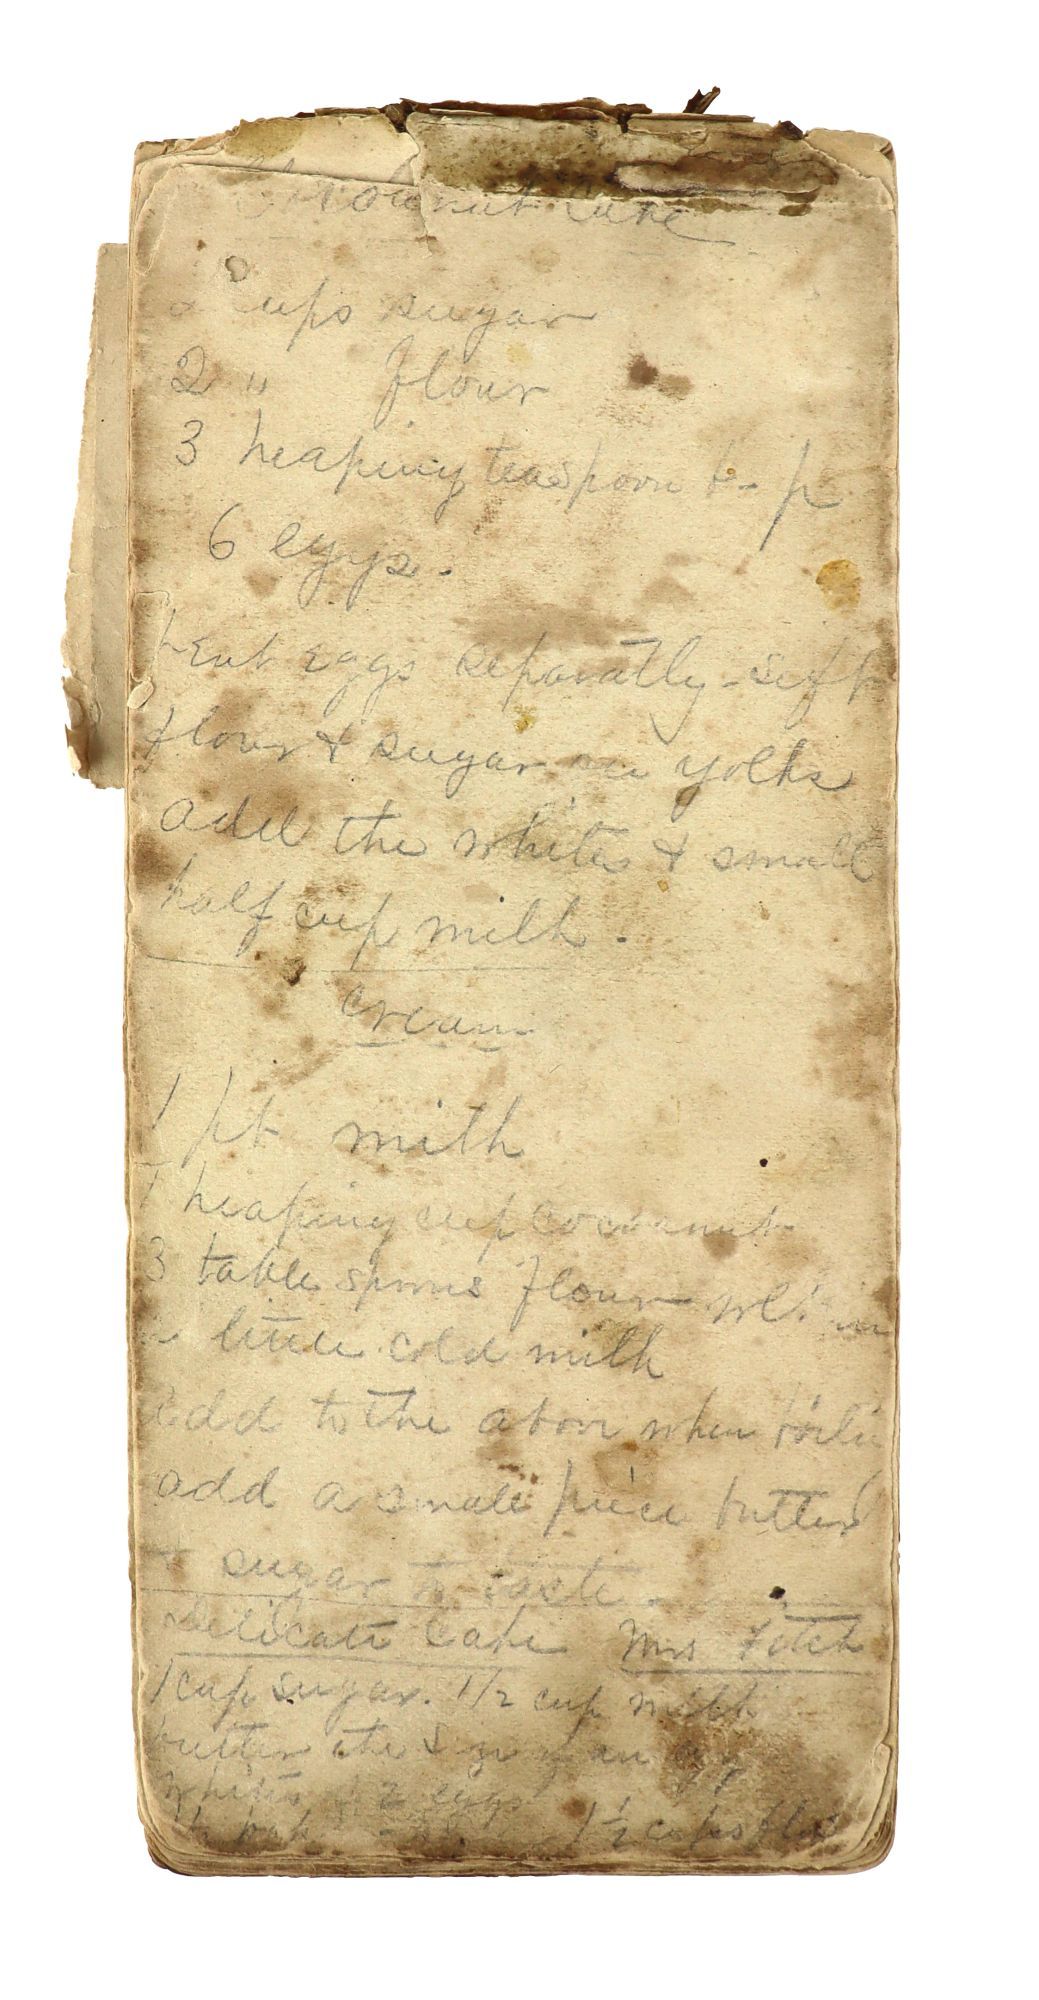 Cocoanut Cake
2 cups sugar
2 " flour
3 heaping teaspoon b-p
6 eggs.
beat eggs separatly - sift
flour & sugar in yolks
add the whites & small
half cup milk.
cream
1 pt milk
1 heaping cup cocoanut
3 table spoons flour wet in
a little cold milk
add to the above when boilin
add a small piece butter
& sugar to taste.
Delicate Cake Mrs Fitch
1 cup sugar. 1/2 cup milk
butter the size of an egg
whites of 2 eggs
1 1/2 cups flour